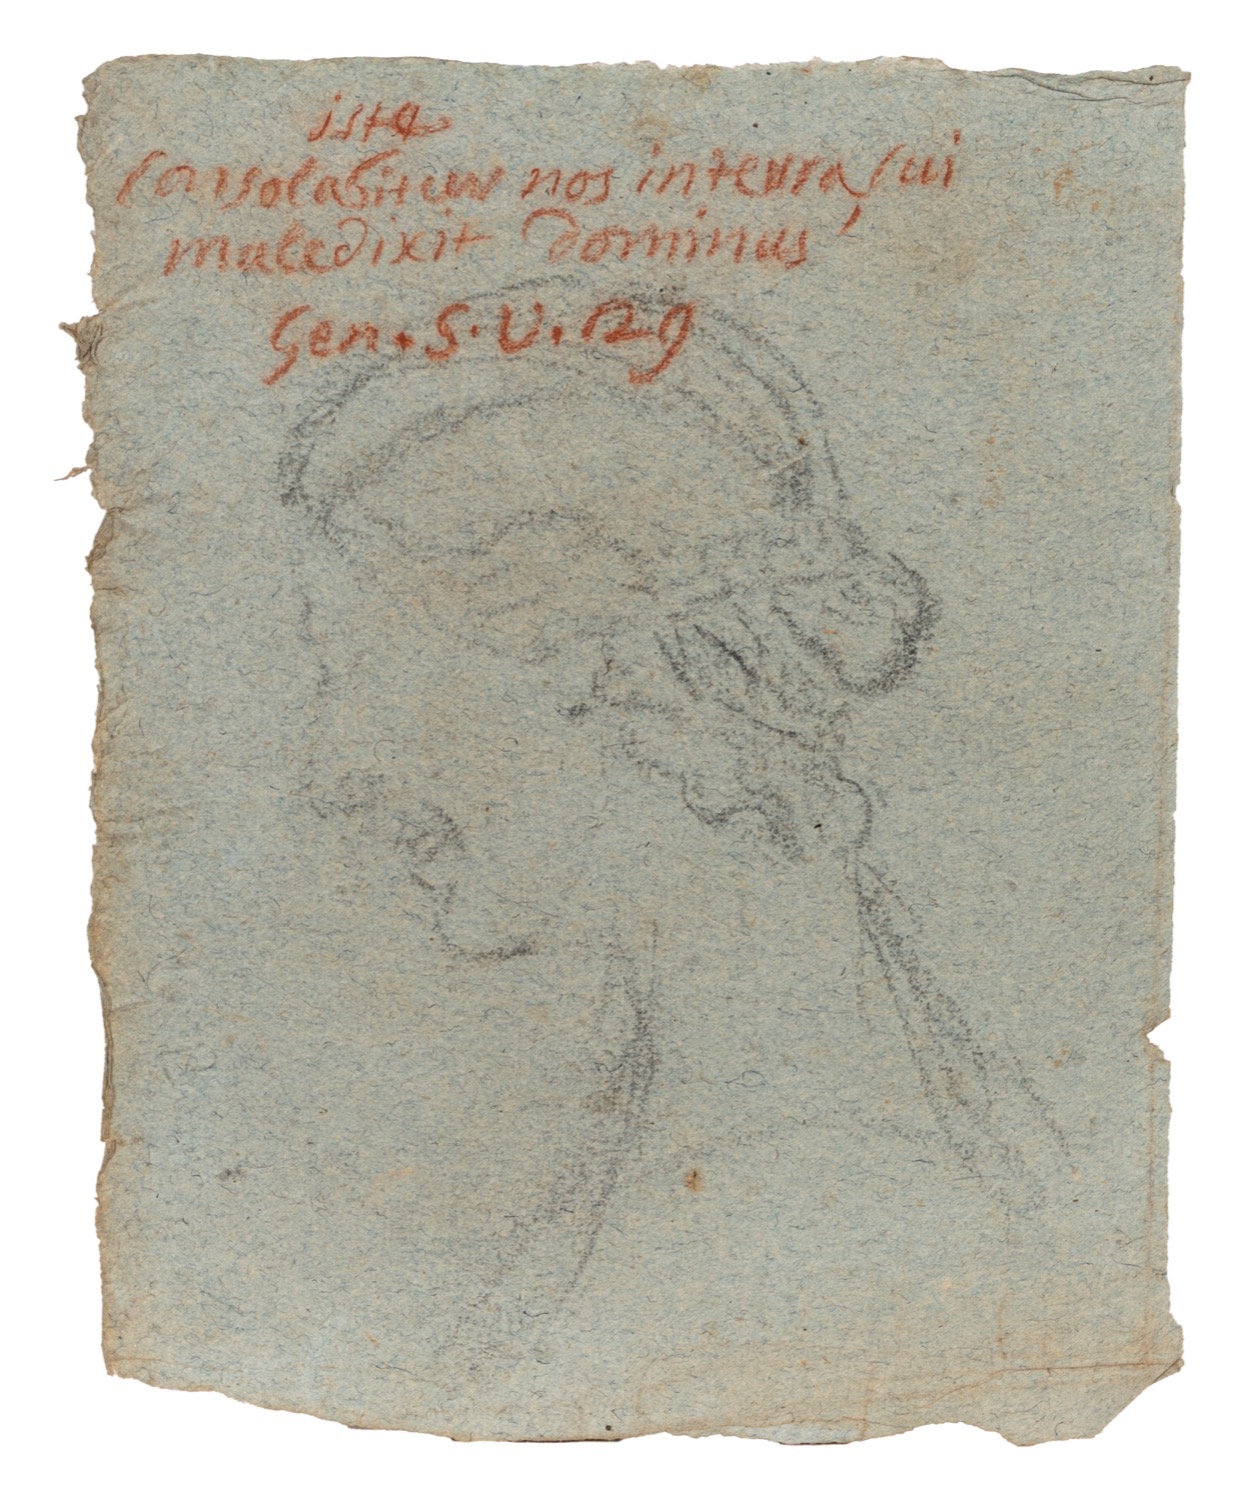 ista
Consolabitur nos in terra, cui
maledixit dominus
Gen. 5. V. 129